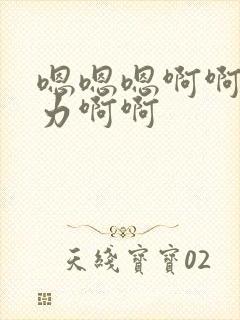 嗯嗯嗯啊啊
力啊啊
天线宝宝02